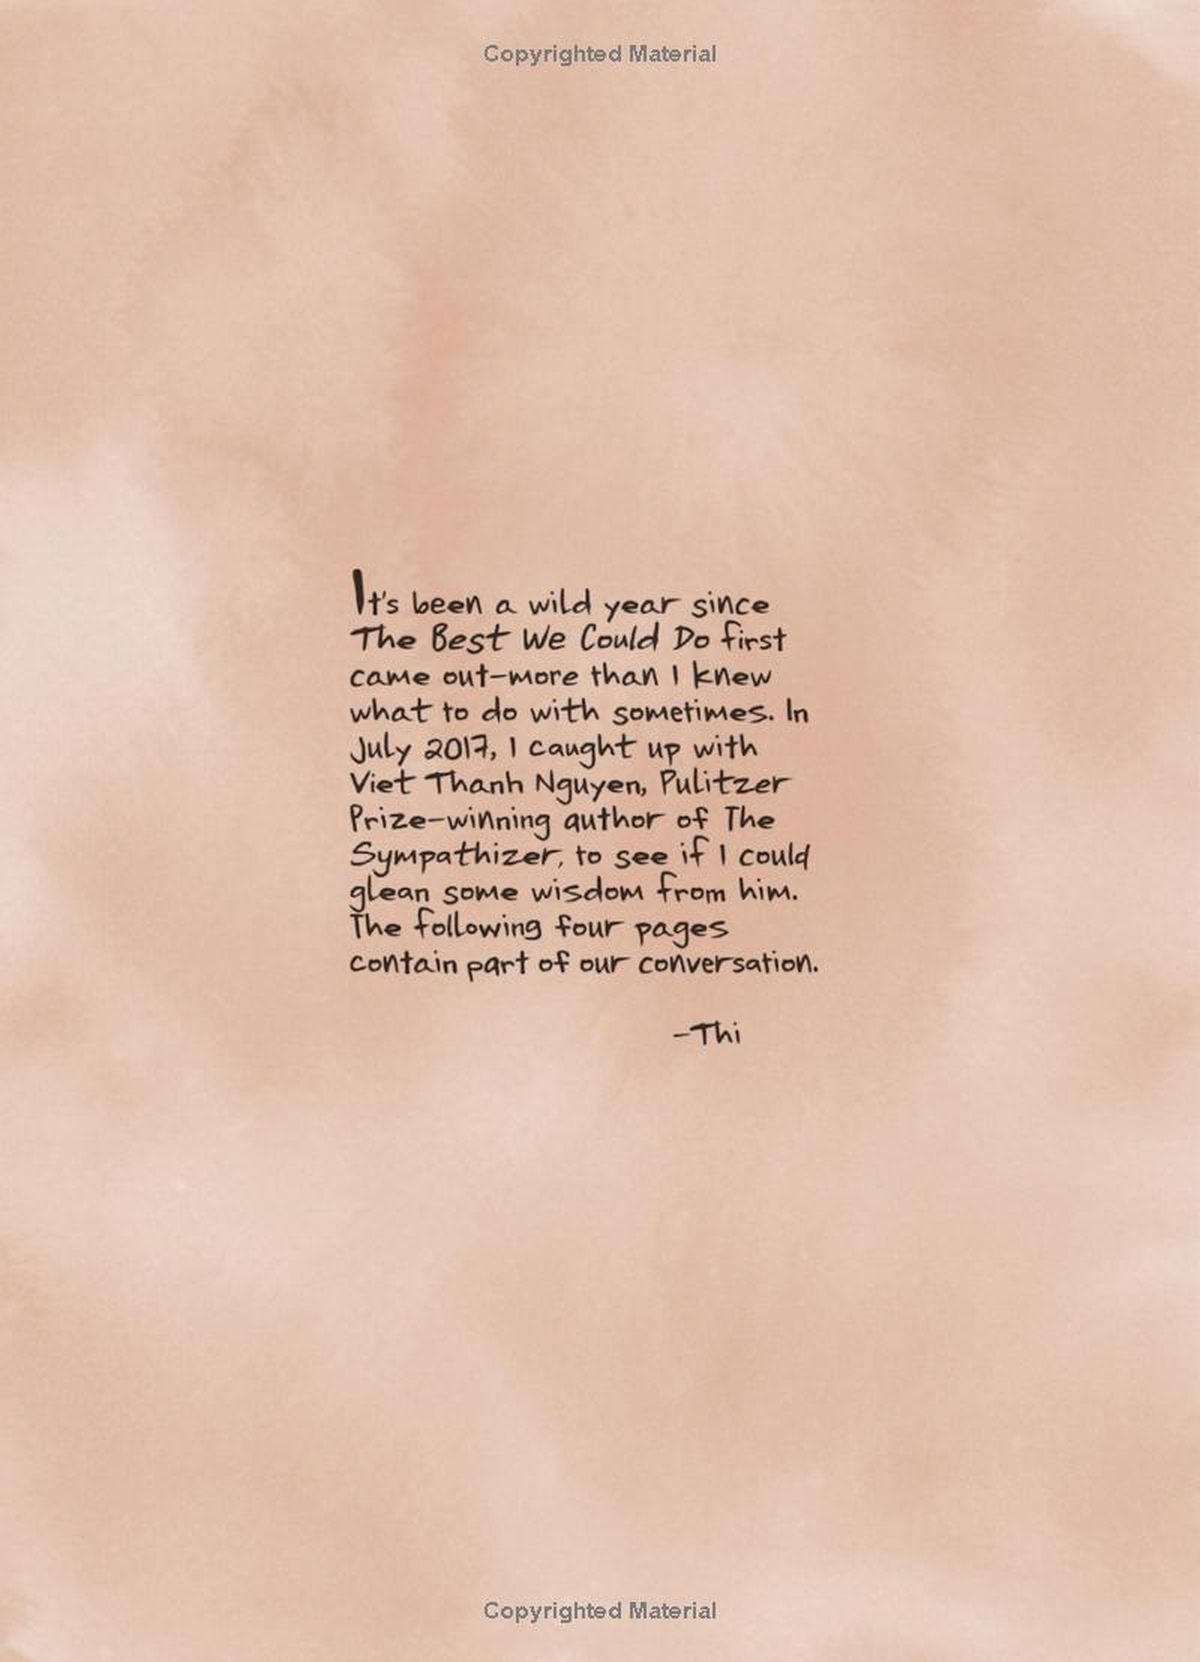 Copyrighted Material
It's been a wild year since
The Best We Could Do first
came out—more than I knew
what to do with sometimes. In
July 2017, I caught up with
Viet Thanh Nguyen, Pulitzer
Prize-winning author of The
Sympathizer, to see if I could
glean some wisdom from him.
The following four pages
contain part of our conversation.
—Thi
Copyrighted Material